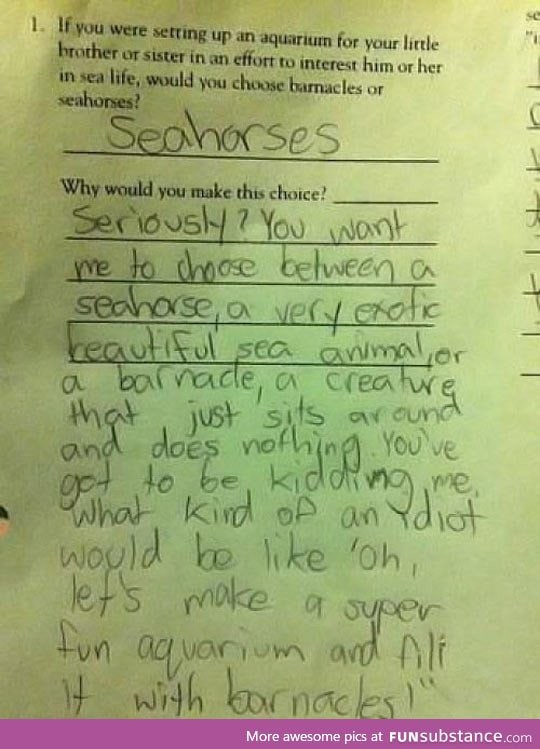 1. If you were setting up an aquarium for your little
brother or sister in an effort to interest him or her
in sea life, would you choose barnacles or
seahorses?
Seahorses
Why would you make this choice?
Seriously? You want
me to choose between a
seahorse, a very exotic
beautiful sea animal, or
a barnacle, a creature
that just sits around
and does nothing. You've
got to be kidding me.
What kind of an idiot
would be like 'oh,
let's make a super
fun aquarium and fill
it with barnacles!"
More awesome pics at FUNsubstance.com